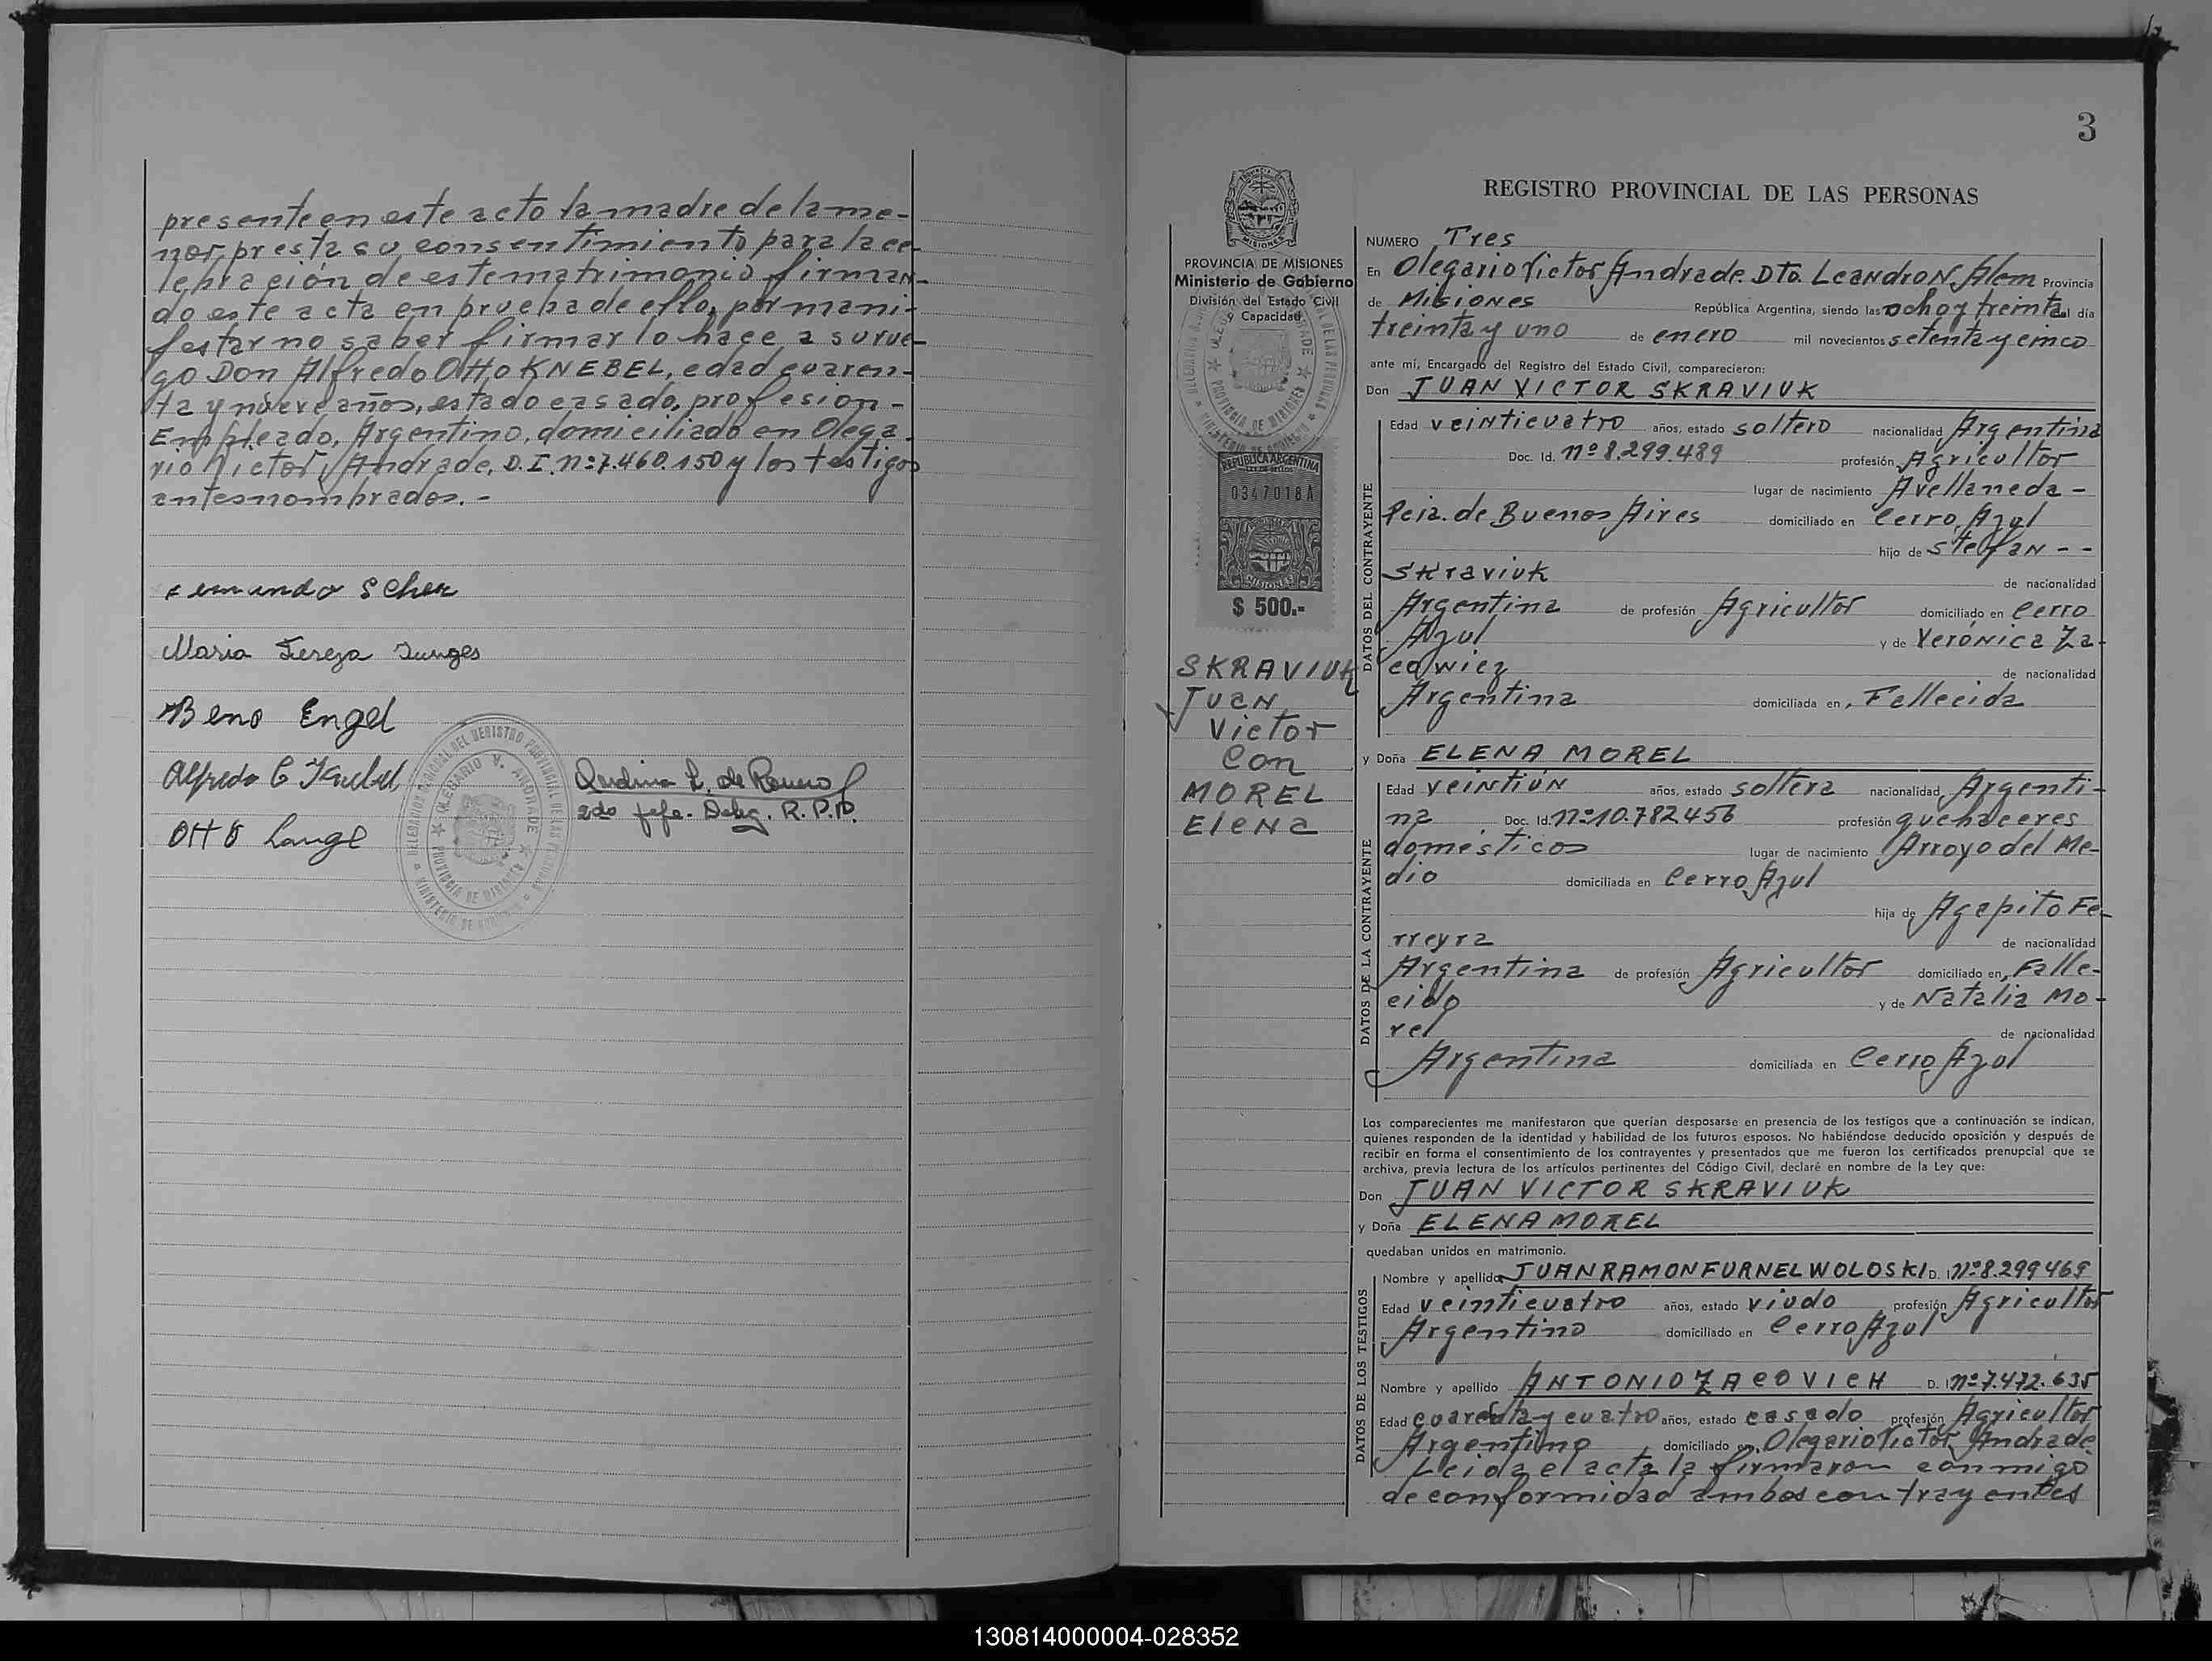 presente en este acto la madre de la me-
nor, presta su consentimiento para la ce-
lebración de este matrimonio firman-
do este acta en prueba de ello, por mani-
festar no saber firmar lo hace a su rue-
go Don Alfredo Otto KNEBEL, edad cuaren-
ta y nueve años, estado casado, profesión-
Empleado, Argentino, domiciliado en Olega-
rio Victor Andrade, D.I. nº 7.460.150 y los testigos
antes nombrados.-
Scher
Maria Tereza Junges
Beno Engel
Alfredo
Otto Lange
L. de Romero
2do Jefe. Deleg. R.P.P.
DELEGACION REGIONAL DEL REGISTRO PROVINCIAL DE LAS PERSONAS
OLEGARIO V. ANDRADE
PROVINCIA DE MISIONES
MINISTERIO DE GOBIERNO
3
MISIONES
PROVINCIA DE MISIONES
Ministerio de Gobierno
División del Estado Civil
y Capacidad
REPUBLICA ARGENTINA
LEY DE SELLOS
0347018A
MISIONES
$ 500.-
SKRAVIUK
Juan
Victor
Con
MOREL
Elena
REGISTRO PROVINCIAL DE LAS PERSONAS
NUMERO Tres
En Olegario Victor Andrade. Dto. Leandro N. Alem Provincia
de Misiones República Argentina, siendo las ocho y treinta al día
treinta y uno de enero mil novecientos setenta y cinco
ante mí, Encargado del Registro del Estado Civil, comparecieron:
Don JUAN VICTOR SKRAVIUK
DATOS DEL CONTRAYENTE
Edad veinticuatro años, estado soltero nacionalidad Argentina
Doc. Id. nº 8.299.489 profesión Agricultor
lugar de nacimiento Avellaneda-
Pcia. de Buenos Aires domiciliado en Cerro Azul
hijo de Stefan - -
Skraviuk de nacionalidad
Argentina de profesión Agricultor domiciliado en Cerro
Azul y de Verónica Za-
cowicz de nacionalidad
Argentina domiciliada en, Fallecida
y Doña ELENA MOREL
DATOS DE LA CONTRAYENTE
Edad veintiún años, estado soltera nacionalidad Argenti-
na Doc. Id. nº 10.782.456 profesión quehaceres
domésticos lugar de nacimiento Arroyo del Me-
dio domiciliada en Cerro Azul
hija de Agapito Fe-
rreyra de nacionalidad
Argentina de profesión Agricultor domiciliado en, Falle-
cido y de Natalia Mo-
rel de nacionalidad
Argentina domiciliada en Cerro Azul
Los comparecientes me manifestaron que querían desposarse en presencia de los testigos que a continuación se indican,
quienes responden de la identidad y habilidad de los futuros esposos. No habiéndose deducido oposición y después de
recibir en forma el consentimiento de los contrayentes y presentados que me fueron los certificados prenupcial que se
archiva, previa lectura de los artículos pertinentes del Código Civil, declaré en nombre de la Ley que:
Don JUAN VICTOR SKRAVIUK
y Doña ELENA MOREL
quedaban unidos en matrimonio.
DATOS DE LOS TESTIGOS
Nombre y apellido JUAN RAMON FURNEL WOLOSKI D. I nº 8.299469
Edad veinticuatro años, estado viudo profesión Agricultor
Argentino domiciliado en Cerro Azul
Nombre y apellido ANTONIO ZACOVICH D. I nº 7.472.635
Edad cuarenta y cuatro años, estado casado profesión Agricultor
Argentino domiciliado en Olegario Victor Andrade
Leída el acta la firmaron conmigo
de conformidad ambos contrayentes
130814000004-028352